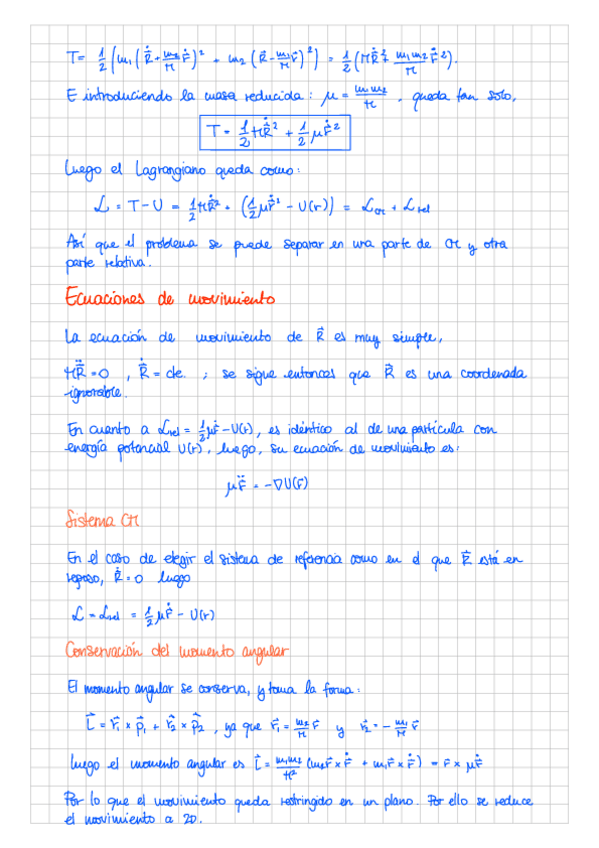 T = 1/2 (m₁(Ṙ + m₂/M ṙ)² + m₂(Ṙ - m₁/M ṙ)²) = 1/2 (MṘ² + m₁m₂/M ṙ²).
E introduciendo la masa reducida: μ = m₁m₂/M, queda tan solo,
T = 1/2 MṘ² + 1/2 μṙ²
Luego el Lagrangiano queda como:
ℒ = T - U = 1/2 MṘ² + (1/2 μṙ² - U(r)) = ℒcm + ℒrel
Así que el problema se puede separar en una parte de CM y otra
parte relativa.
Ecuaciones de movimiento
La ecuación de movimiento de R⃗ es muy simple,
MR̈ = 0, Ṙ = cte. ; se sigue entonces que R⃗ es una coordenada
ignorable.
En cuanto a ℒrel = 1/2 μṙ - U(r), es idéntico al de una partícula con
energía potencial U(r), luego, su ecuación de movimiento es:
μr̈ = -∇U(r)
Sistema CM
En el caso de elegir el sistema de referencia como en el que R⃗ está en
reposo, Ṙ = 0 luego
ℒ = ℒrel = 1/2 μṙ - U(r)
Conservación del momento angular
El momento angular se conserva, y toma la forma:
L⃗ = r⃗₁ × p⃗₁ + r⃗₂ × p⃗₂, ya que r⃗₁ = m₂/M r⃗ y r⃗₂ = - m₁/M r⃗
luego el momento angular es L⃗ = m₁m₂/M² (m₂r × ṙ + m₁r × ṙ) = r × μṙ
Por lo que el movimiento queda restringido en un plano. Por ello se reduce
el movimiento a 2D.